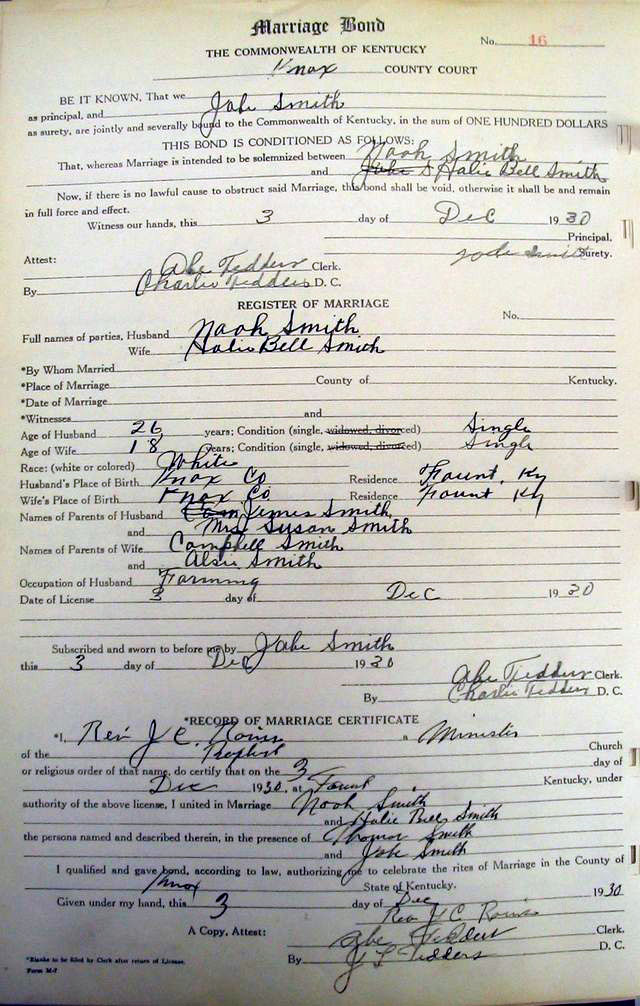 Marriage Bond
No. 16
THE COMMONWEALTH OF KENTUCKY
Knox COUNTY COURT
BE IT KNOWN, That we Jake Smith
as principal, and
as surety, are jointly and severally bound to the Commonwealth of Kentucky, in the sum of ONE HUNDRED DOLLARS
THIS BOND IS CONDITIONED AS FOLLOWS:
That, whereas Marriage is intended to be solemnized between Noah Smith
and Halie Bell Smith
Now, if there is no lawful cause to obstruct said Marriage, this bond shall be void, otherwise it shall be and remain
in full force and effect.
Witness our hands, this 3 day of Dec 1930
Principal.
Smith Surety.
Attest: Abe Tedders Clerk.
By Charlie Tedders D. C.
REGISTER OF MARRIAGE
No.
Full names of parties, Husband Noah Smith
Wife Halie Bell Smith
*By Whom Married
*Place of Marriage County of Kentucky.
*Date of Marriage
*Witnesses and
Age of Husband 26 years; Condition (single, widowed, divorced) Single
Age of Wife 18 years; Condition (single, widowed, divorced) Single
Race: (white or colored) White
Husband's Place of Birth Knox Co Residence Fount, Ky
Wife's Place of Birth Knox Co Residence Fount Ky
Names of Parents of Husband James Smith
and Mrs Susan Smith
Names of Parents of Wife Campbell Smith
and Alsie Smith
Occupation of Husband Farming
Date of License 3 day of Dec 1930
Subscribed and sworn to before me by Jake Smith
this 3 day of Dec 1930
Abe Tedders Clerk.
By Charlie Tedders D. C.
*RECORD OF MARRIAGE CERTIFICATE
*I, Rev J C a Minister
of the Baptist Church
or religious order of that name, do certify that on the 3 day of
Dec 1930, at Fount Kentucky, under
authority of the above license, I united in Marriage Noah Smith
and Halie Bell Smith
the persons named and described therein, in the presence of Thomas Smith
and Jake Smith
I qualified and gave bond, according to law, authorizing me to celebrate the rites of Marriage in the County of
Knox State of Kentucky.
Given under my hand, this 3 day of Dec 1930
Rev J C
A Copy, Attest: Abe Tedders Clerk.
By J L Tedders D. C.
*Blanks to be filed by Clerk after return of License.
Form M-7